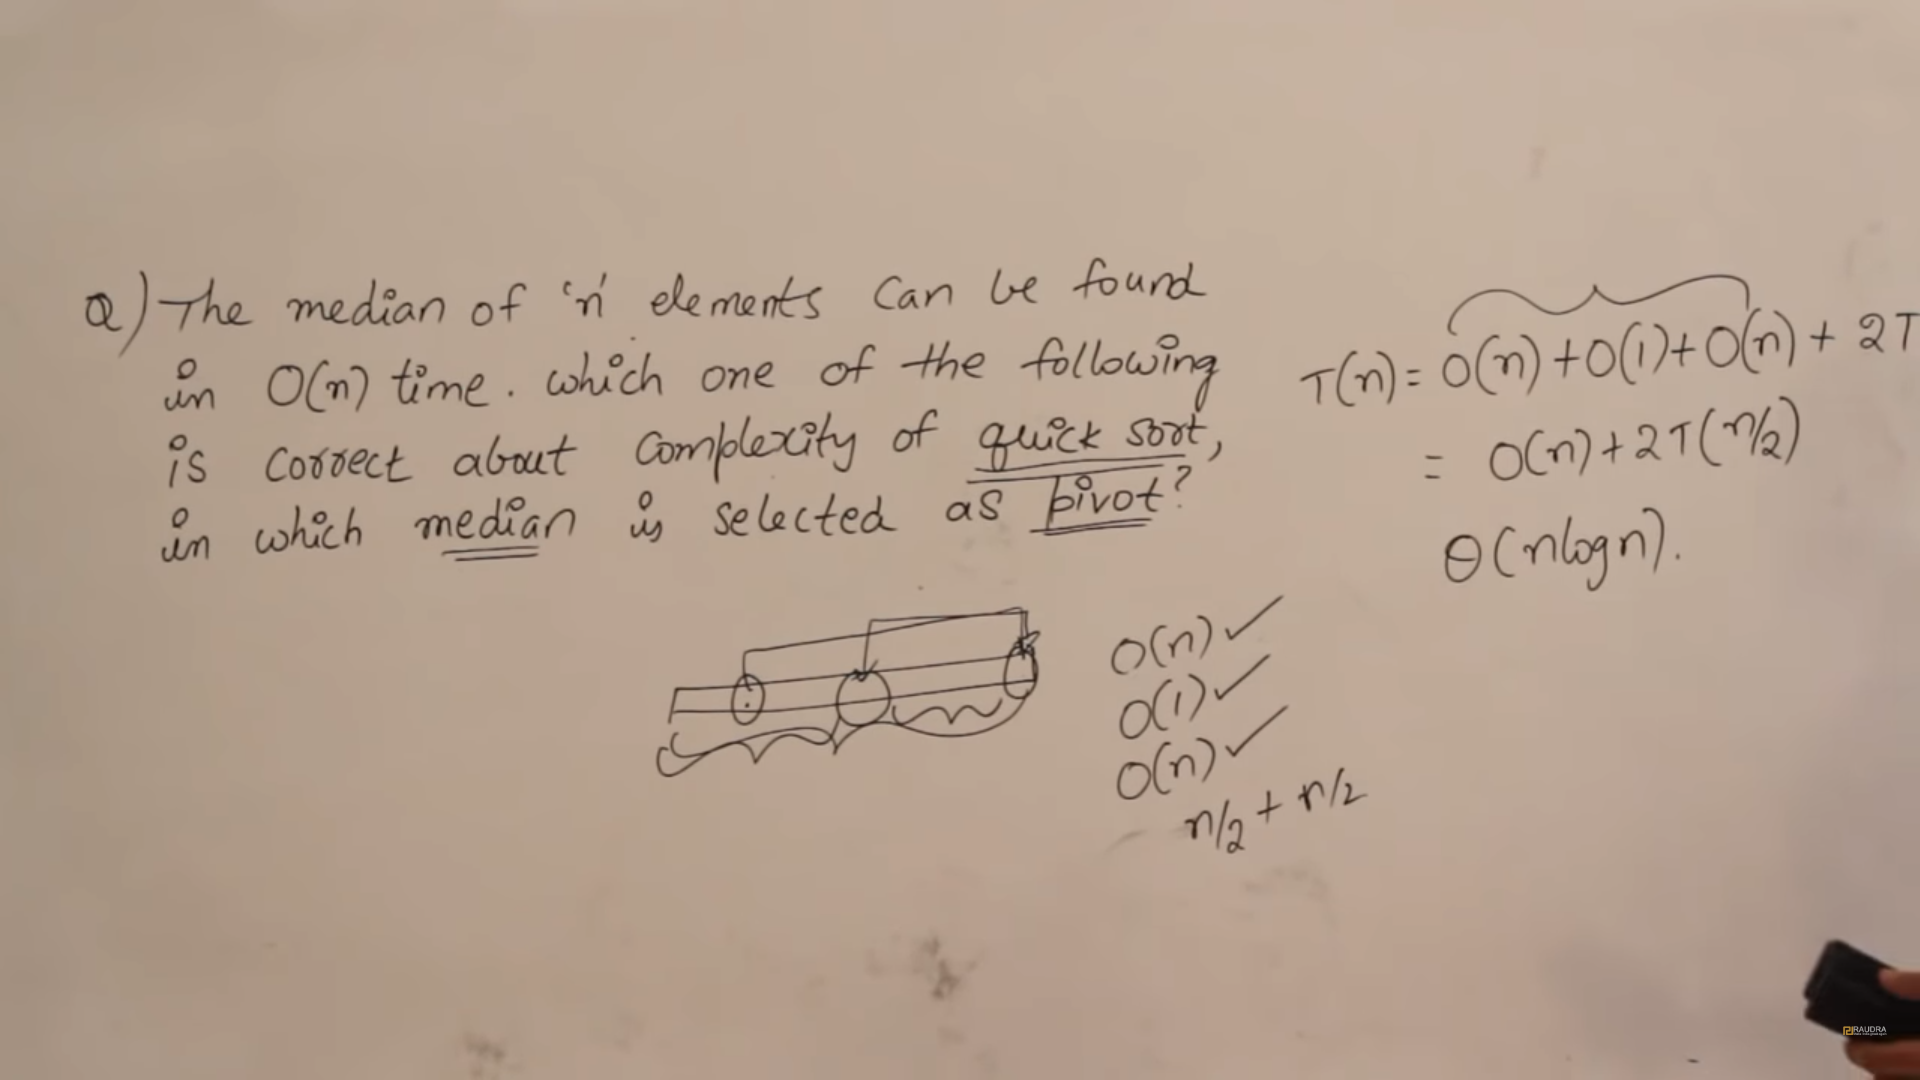 Q) The median of 'n' elements can be found
in O(n) time. which one of the following
is correct about complexity of quick sort,
in which median is selected as pivot?
T(n) = O(n) + O(1) + O(n) + 2T
= O(n) + 2T(n/2)
θ(nlogn).
O(n) ✓
O(1) ✓
O(n) ✓
n/2 + n/2
RAUDRA